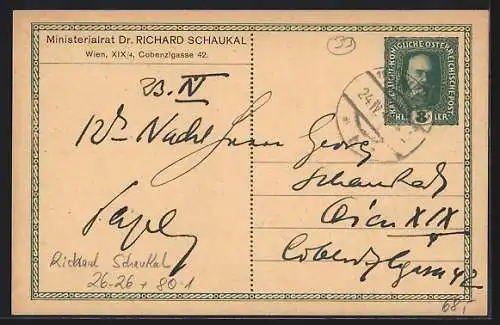 Ministerialrat Dr. RICHARD SCHAUKAL
Wien, XIX/4, Cobenzlgasse 42.
33
KAISERLICHE KÖNIGLICHE ÖSTERREICHISCHE POST
8
HELLER
24 IV
23. IV
Herrn Georg
Schaukal
Wien XIX
Cobenzlgasse 42
Richard Schaukal
26-26 + 80-1
68,-